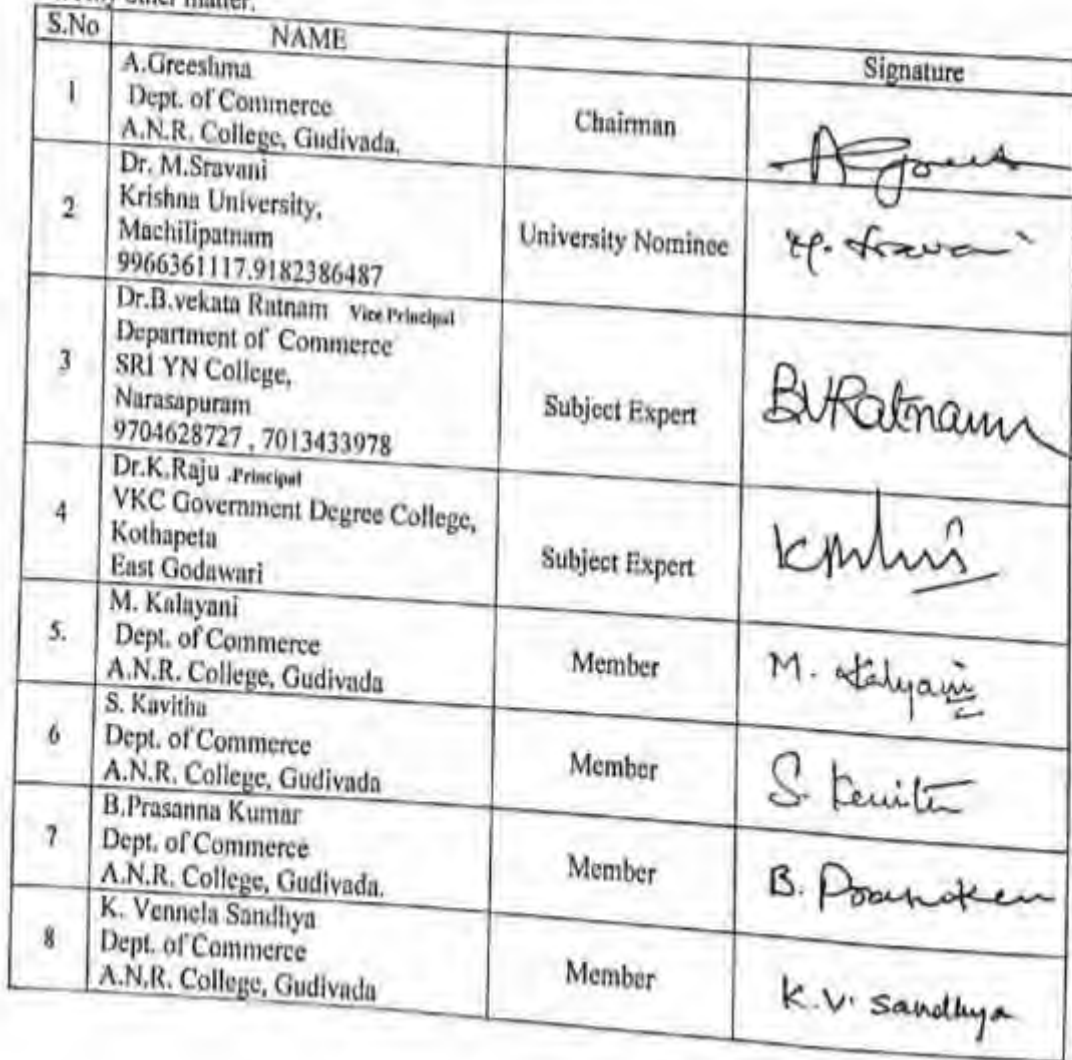 other matter.
S.No NAME Signature
1 A.Greeshma
Dept. of Commerce
A.N.R. College, Gudivada.
Chairman
2 Dr. M.Sravani
Krishna University,
Machilipatnam
9966361117.9182386487
University Nominee
3 Dr.B.vekata Ratnam Vice Principal
Department of Commerce
SRI YN College,
Narasapuram
9704628727 , 7013433978
Subject Expert
BVRatnam
4 Dr.K.Raju .Principal
VKC Government Degree College,
Kothapeta
East Godawari
Subject Expert
5. M. Kalayani
Dept. of Commerce
A.N.R. College, Gudivada
Member
M. Kalyani
6 S. Kavitha
Dept. of Commerce
A.N.R. College, Gudivada
Member
7 B.Prasanna Kumar
Dept. of Commerce
A.N.R. College, Gudivada.
Member
8 K. Vennela Sandhya
Dept. of Commerce
A.N.R. College, Gudivada
Member
K.V. Sandhya